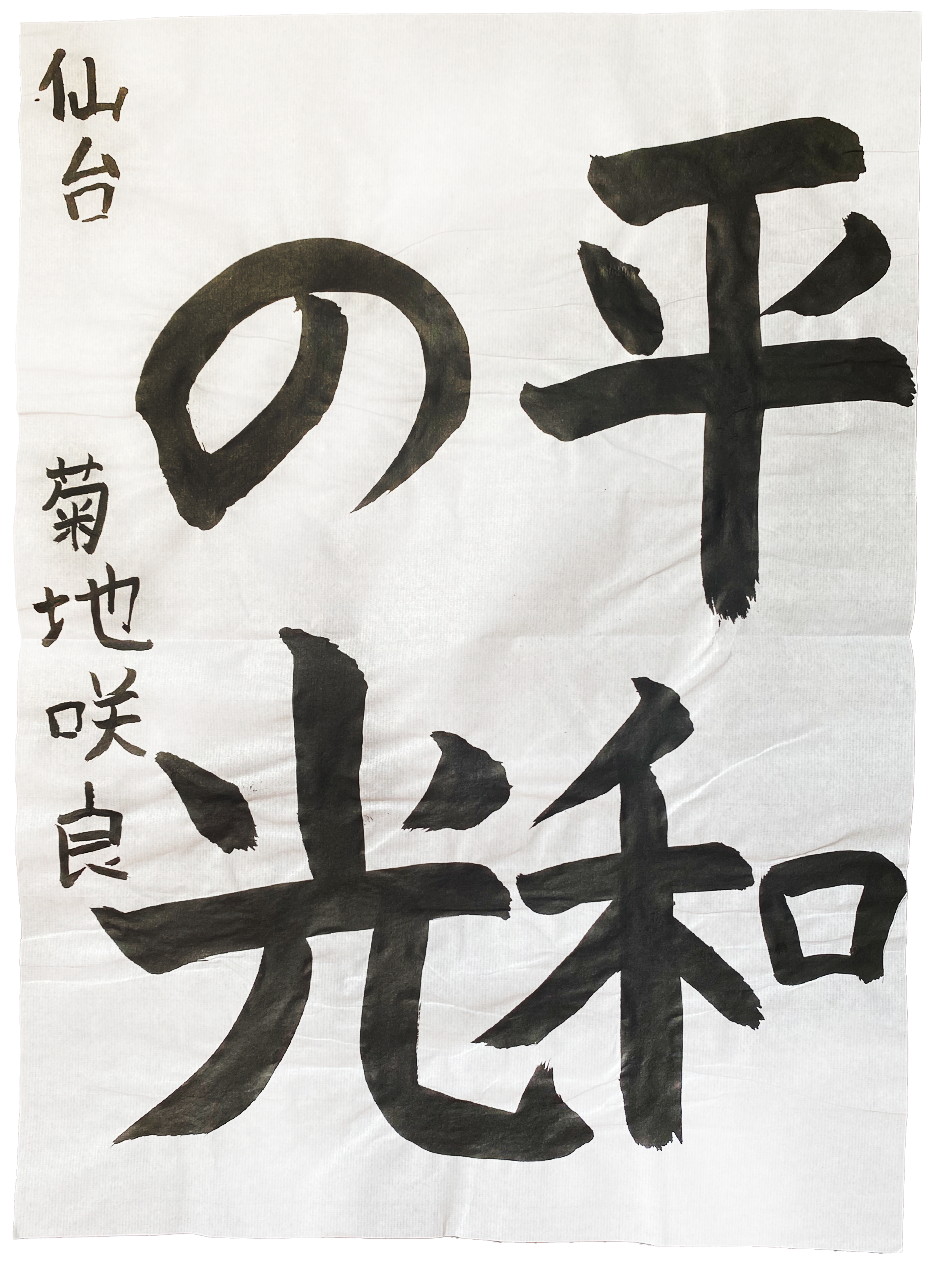 平和
の光
仙台 菊地咲良